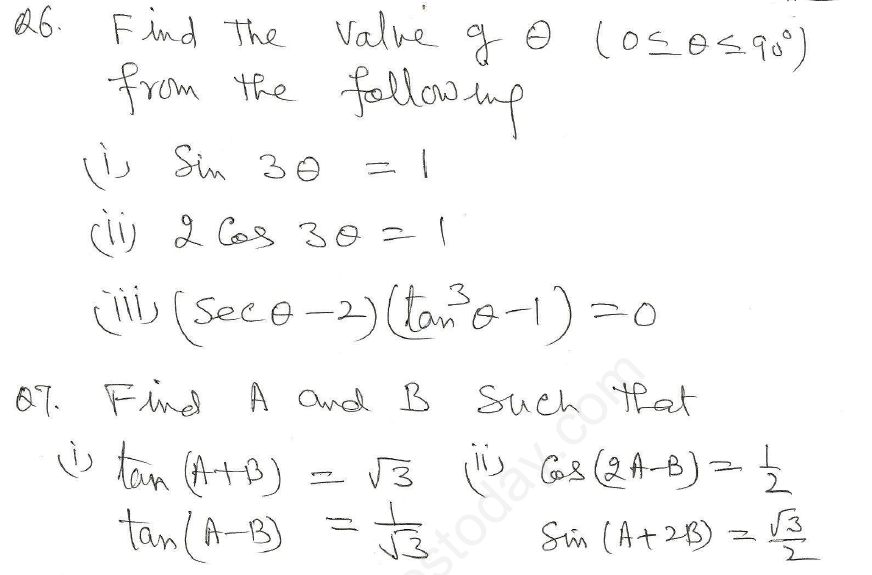 Q6. Find the value of θ (0≤θ≤90°)
from the following
(i) Sin 3θ = 1
(ii) 2 Cos 3θ = 1
(iii) (Secθ-2)(tan³θ-1) = 0
Q7. Find A and B such that
(i) tan (A+B) = √3 (ii) Cos (2A-B) = 1/2
tan (A-B) = 1/√3 Sin (A+2B) = √3/2
stoday.com